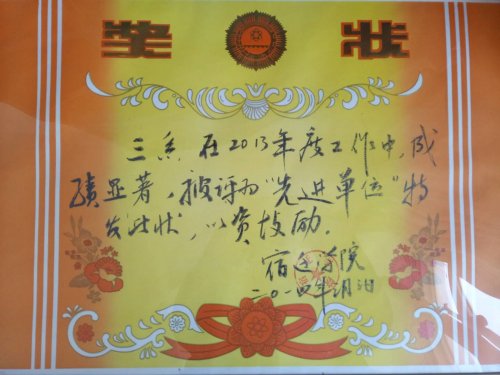 奖状
三系在2013年度工作中，成
绩显著，被评为“先进单位”特
发此状，以资鼓励。
宿迁学院
二〇一四年月